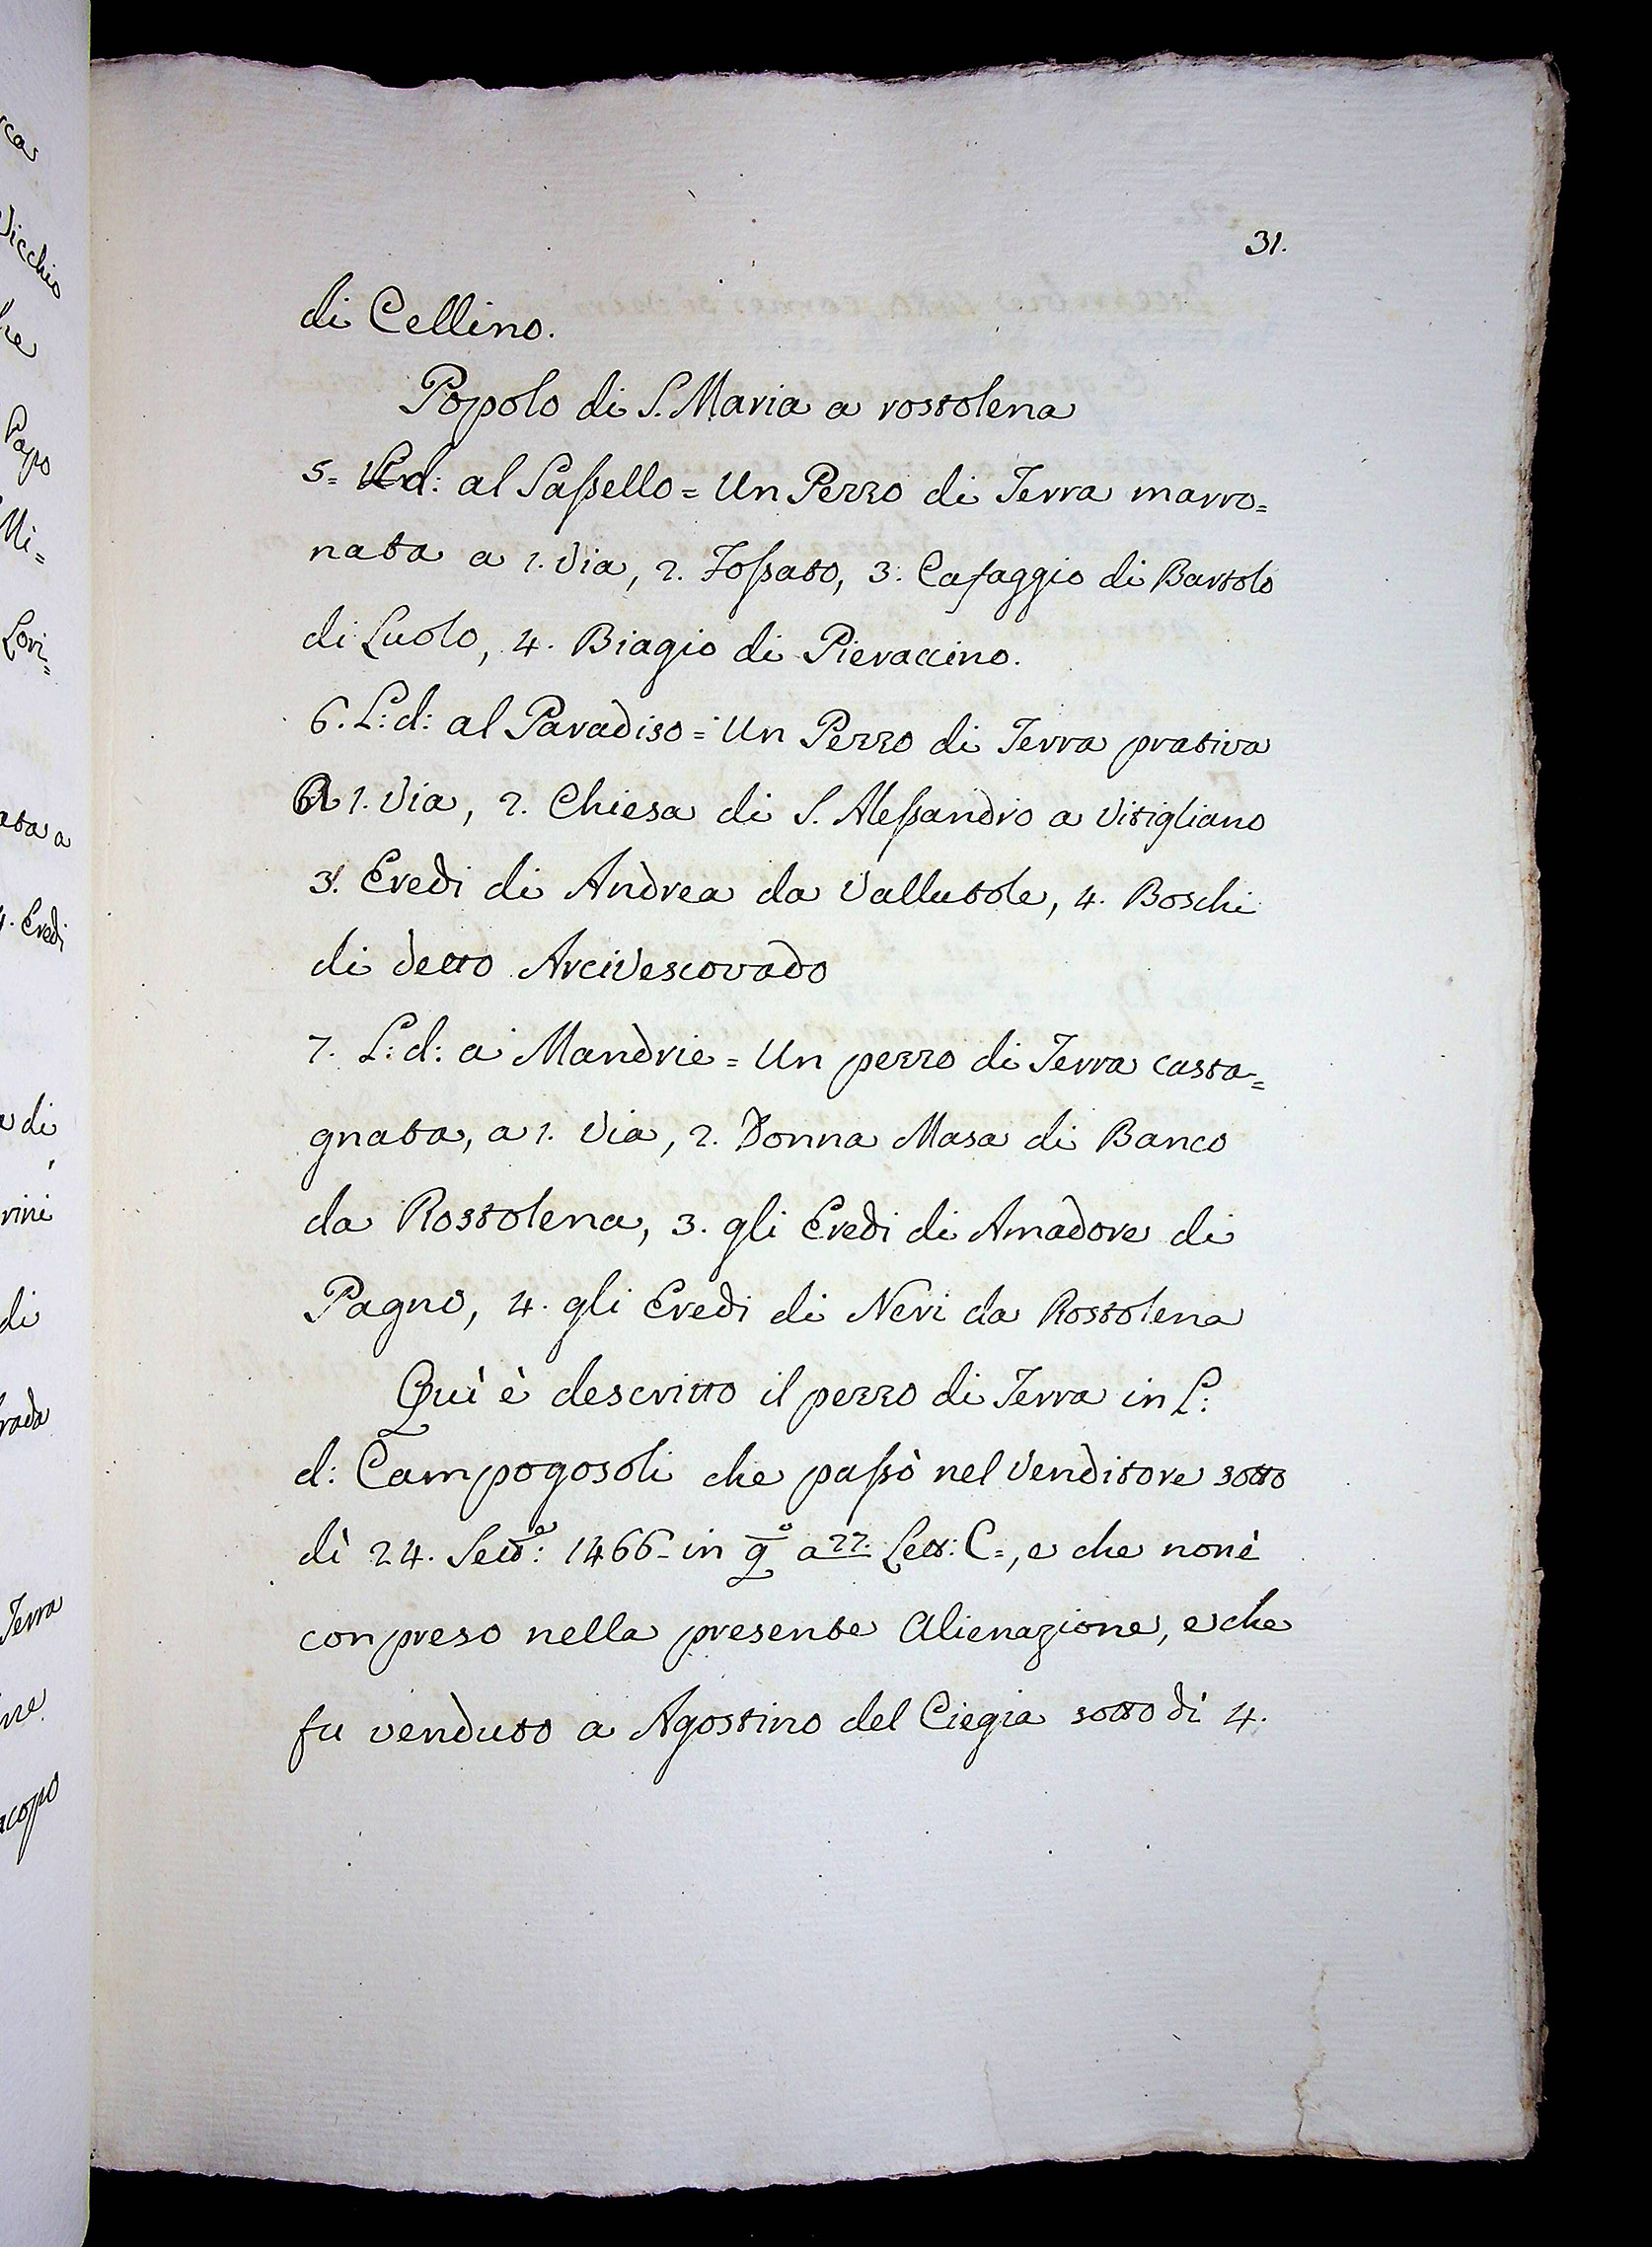 31.
di Cellino.
Popolo di S. Maria a rostolena
5= L:d: al Sassello = Un Pezzo di Terra marro=
nata a 1. Via, 2. Fossato, 3. Cafaggio di Bartolo
di Luolo, 4. Biagio di Pieraccino.
6. L:d: al Paradiso = Un Pezzo di Terra prativa
A 1. Via, 2. Chiesa di S. Alessandro a Vitigliano
3. Eredi di Andrea da Vallutole, 4. Boschi
di detto Arcivescovado
7. L:d: a Mandrie = Un pezzo di Terra casta=
gnata, a 1. Via, 2. Donna Masa di Banco
da Rostolena, 3. gli Eredi di Amadore di
Pagno, 4. gli Eredi di Neri da Rostolena
Quì è descritto il pezzo di Terra in L:
d: Campogosoli che passò nel Venditore sotto
dì 24. Sett:e 1466 - in q.o a 22. Lett: C=, e che non è
conpreso nella presente Alienazione, e che
fu venduto a Agostino del Ciegia sotto dì 4.
Vicchio
he
Papo
Mi=
Lori=
ata a
4. Eredi
di
rini
di
Terra
acopo